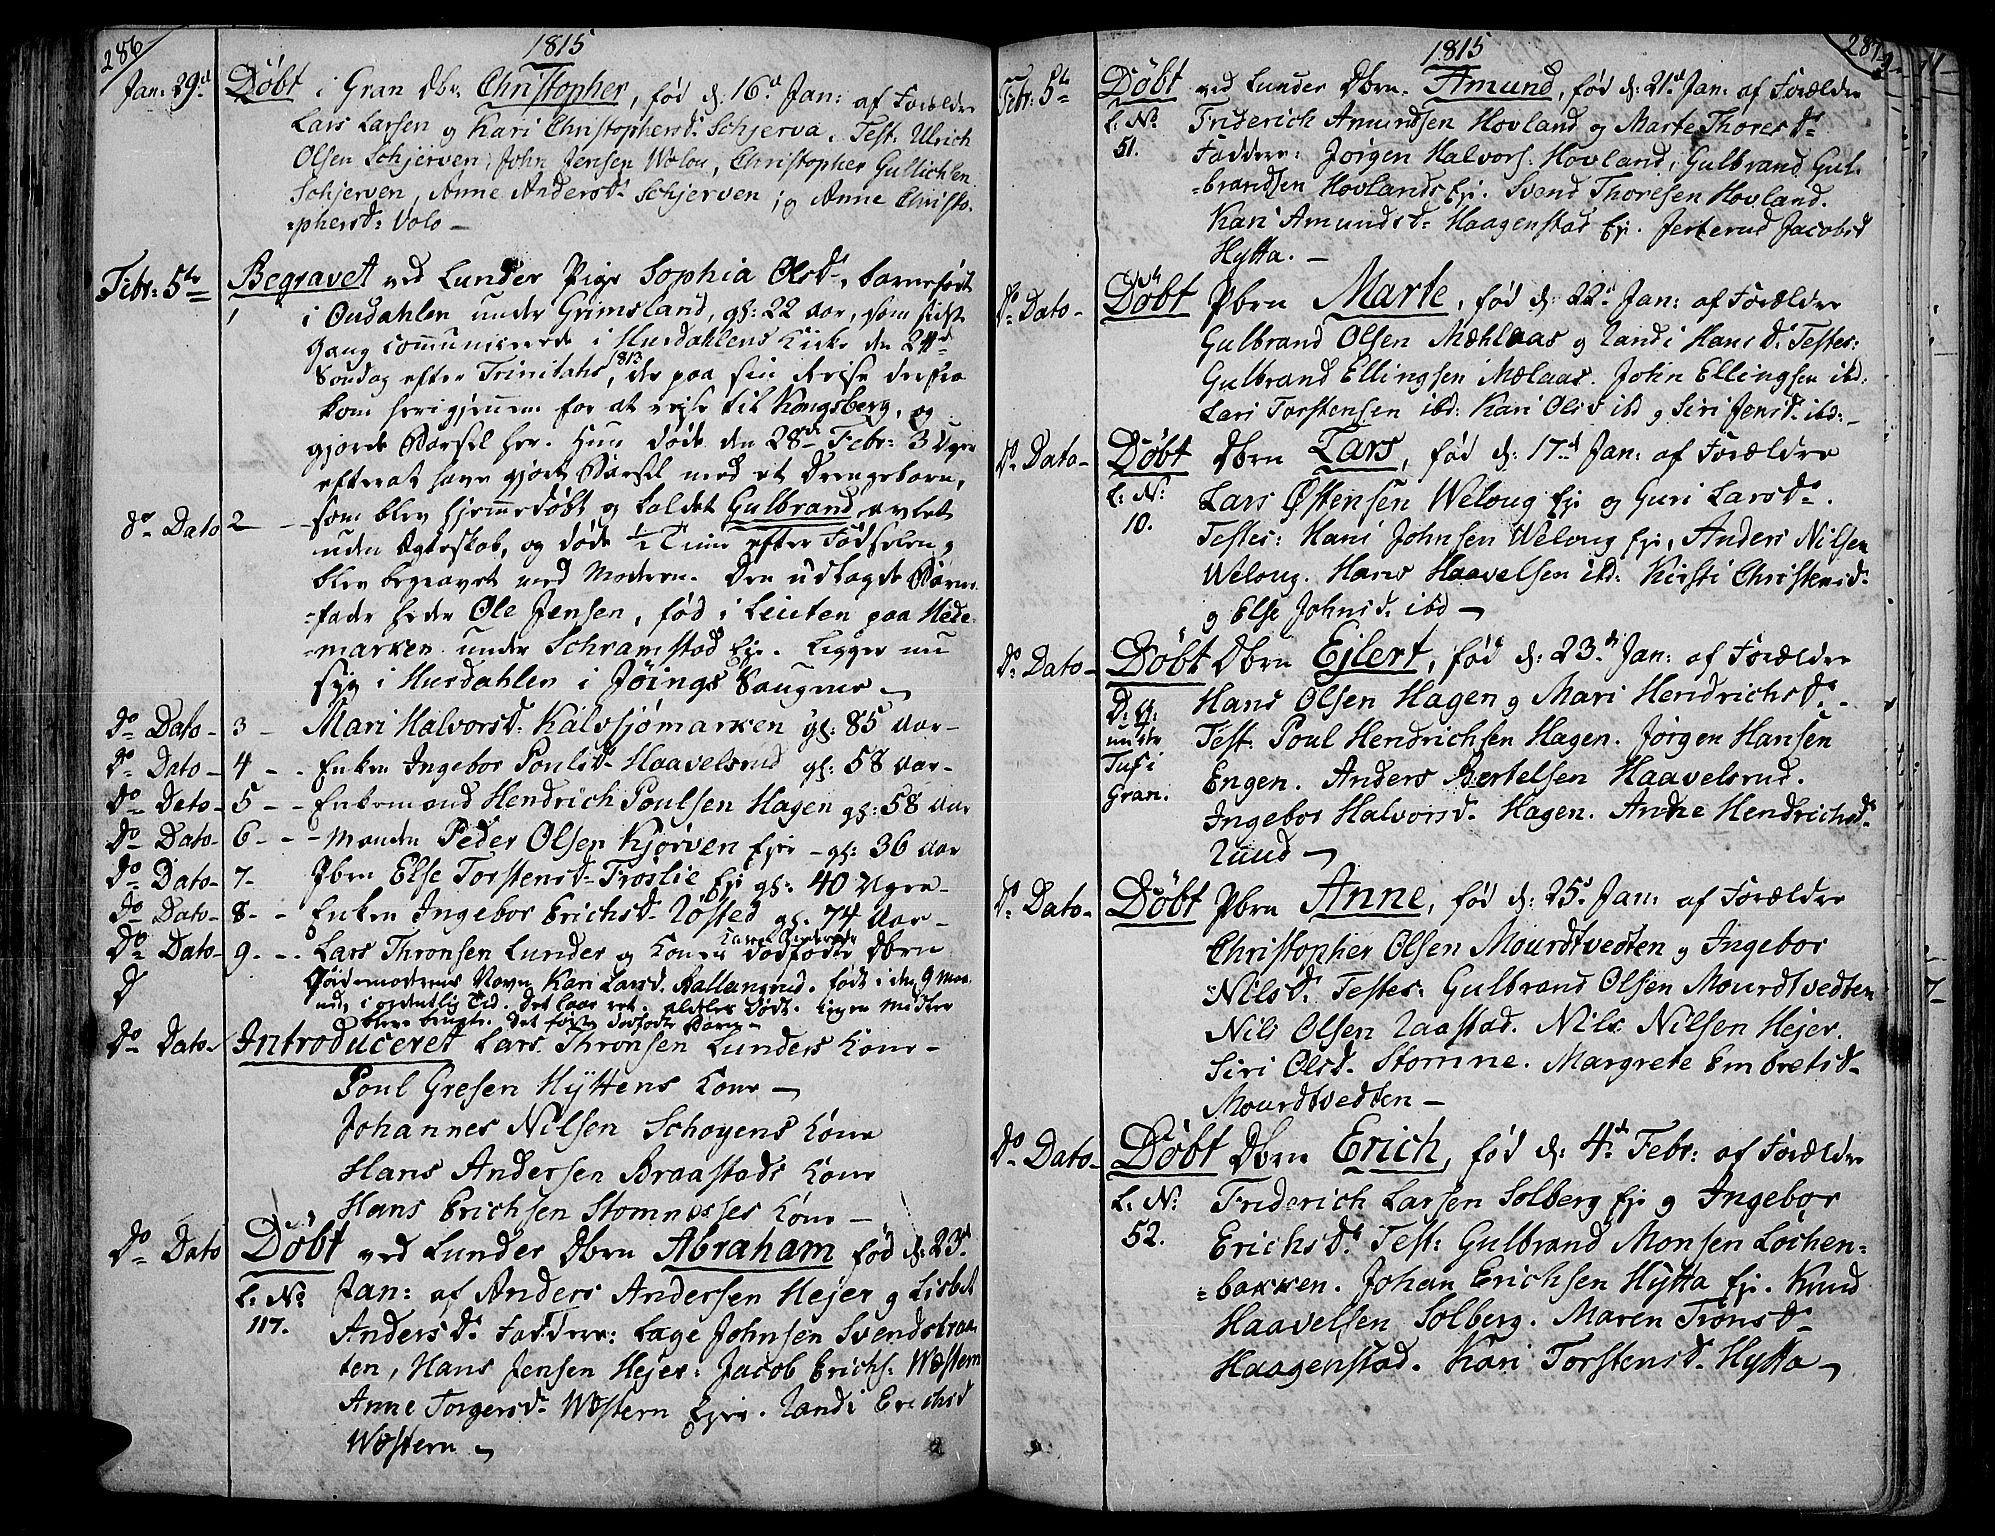 286
1815
Jan. 29d Döbt i Gran Dbr. Christopher, fød d. 16d Jan: af Forældre
Lars Larsen og Kari Christophersd. Schjerva. Test. Ulrich
Olsen Schjerven, John Jensen Wolou, Christopher Gullichsen
Schjerven, Anne Andersd. Schjerven, og Anne Christo-
=phersd: Volo –
Febr: 5te Begravet ved Lunder Pige Sophia Olsd., barnefødt
1 i Oudahlen under Grimsland, gl: 22 Aar, som sidste
Gang communicerede i Hurdahlens Kirke den 24de
Søndag efter Trinitatis, 1813 der paa sin Reise derfra
kom herigjennem for at reise til Kongsberg, og
gjorde Barsel her. Hun døde den 28de Febr: 3 Uger
efterat have gjort Barsel med et Drengebarn,
Do Dato 2 – som blev hjemmedøbt og kaldet Gulbrand, avlet
uden Ægteskab, og døde 1/2 Time efter Fødselen,
blev begravet med Moderen. Den udlagde Barne-
=fader heder Ole Jensen, fød i Leuten paa Hede-
=marken under Schramstad Eje. Ligger nu
syg i Hurdahlen i Jöings Saugene –
Do Dato – 3 – Mari Halvorsd. Kalvsjömarken gl: 85 Aar –
Do Dato – 4 – Enken Ingebor Poulsd. Haavelsrud gl: 58 Aar –
Do Dato – 5 – Enkemand Hendrich Poulsen Hagen gl: 58 Aar
Do Dato – 6 – Manden Peder Olsen Kjørven Eje – gl: 36 Aar
Do Dato – 7 – Pbrn Else Torstensd. Froslie Ej gl: 40 Ugr –
Do Dato – 8 – Enken Ingebor Erichsd. Røsted gl. 74 Aar –
Do Dato – 9 – Lars Thronsen Lunder og Kones dødfødte Dbrn
Jordemoderens Navn Kari Larsd. Ballangrud. født i den 9 Maa-
ned, i ordentlig Tid. Det laae ret. aldeles dødt. Ingen Midler
bleve brugte. Det første dødfødte Barn –
Do Dato – Introduceret Lars Thronsen Lunders Kone –
Poul Gresen Hyttens Kone –
Johannes Nilsen Schøyens Kone
Hans Andersen Braastads Kone
Hans Erichsen Stomnesses Kone –
Do Dato Döbt ved Lunder Dbrn Abraham fød d: 23d
L: No 117. Jan: af Anders Andersen Hejer og Lisbet
Andersd. Faddere: Lage Johnsen Svendstraa-
ten, Hans Jensen Hejer: Jacob Erichs: Wæstern
Anne Torgersd. Wæstern Eje. Randi Erichsd
Wæstern –
287
1815
Febr: 5te Döbt ved Lunder Dbrn. Amund, fød d: 21d Jan: af Forældre
L: No 51. Friderich Amundsen Hovland og Marte Thoresd.
Faddere: Jörgen Halvors: Hovland, Gulbrand Gul-
=brandsen Hovlands Ej. Svend Thoresen Hovland.
Kari Amundsd: Haagenstad Ej. Jerterud Jacobsd
Hytta. –
Do Dato – Döbt Pbrn Marte, fød d: 22d Jan: af Forældre
Gulbrand Olsen Mæhlaas og Randi Hansd. Testes:
Gulbrand Ellingsen Mælaas. John Ellingsen ibd:
Lars Torstensen ibd: Kari Olsd ibd og Siri Jensd. ibd: –
Do Dato – Döbt Dbrn Lars, fød d: 17d Jan: af Forældre
L: No: 10. Lars Østensen Weloug Ej og Guri Larsd.
Testes: Hans Johnsen Weloug Ej, Anders Nilsen
Weloug. Hans Haavelsen ibd: Kirsti Christensd.
og Else Johnsd. ibd –
Do Dato – Döbt Dbrn Ejlert, fød d: 23d Jan: af Forældre
Hans Olsen Hagen og Mari Hendrichsd. –
Test. Poul Hendrichsen Hagen. Jørgen Hansen
Gran. Engen. Anders Bertelsen Haavelsrud.
Ingebor Halvorsd. Hagen. Anne Hendrichsd.
Ruud –
Do Dato – Döbt Pbrn Anne, fød d: 25d Jan: af Forældre
Christopher Olsen Mourdtvedten og Ingebor
Nilsd. Testes: Gulbrand Olsen Mourdtvedten
Nils Olsen Raastad. Nils Nilsen Hejer.
Siri Olsd. Stomne. Margrete Embretsd.
Mourdtvedten –
Do Dato – Döbt Dbrn Erich, fød d: 4de Febr: af Forældre
L: No 52. Friderich Larsen Solberg Ej og Ingebor
Erichsd. Test: Gulbrand Monsen Lochen=
=bakken. Johan Erichsen Hytta Ej. Knud
Haavelsen Solberg. Maren Tronsd.
Haagenstad. Kari Torstensd. Hytta –